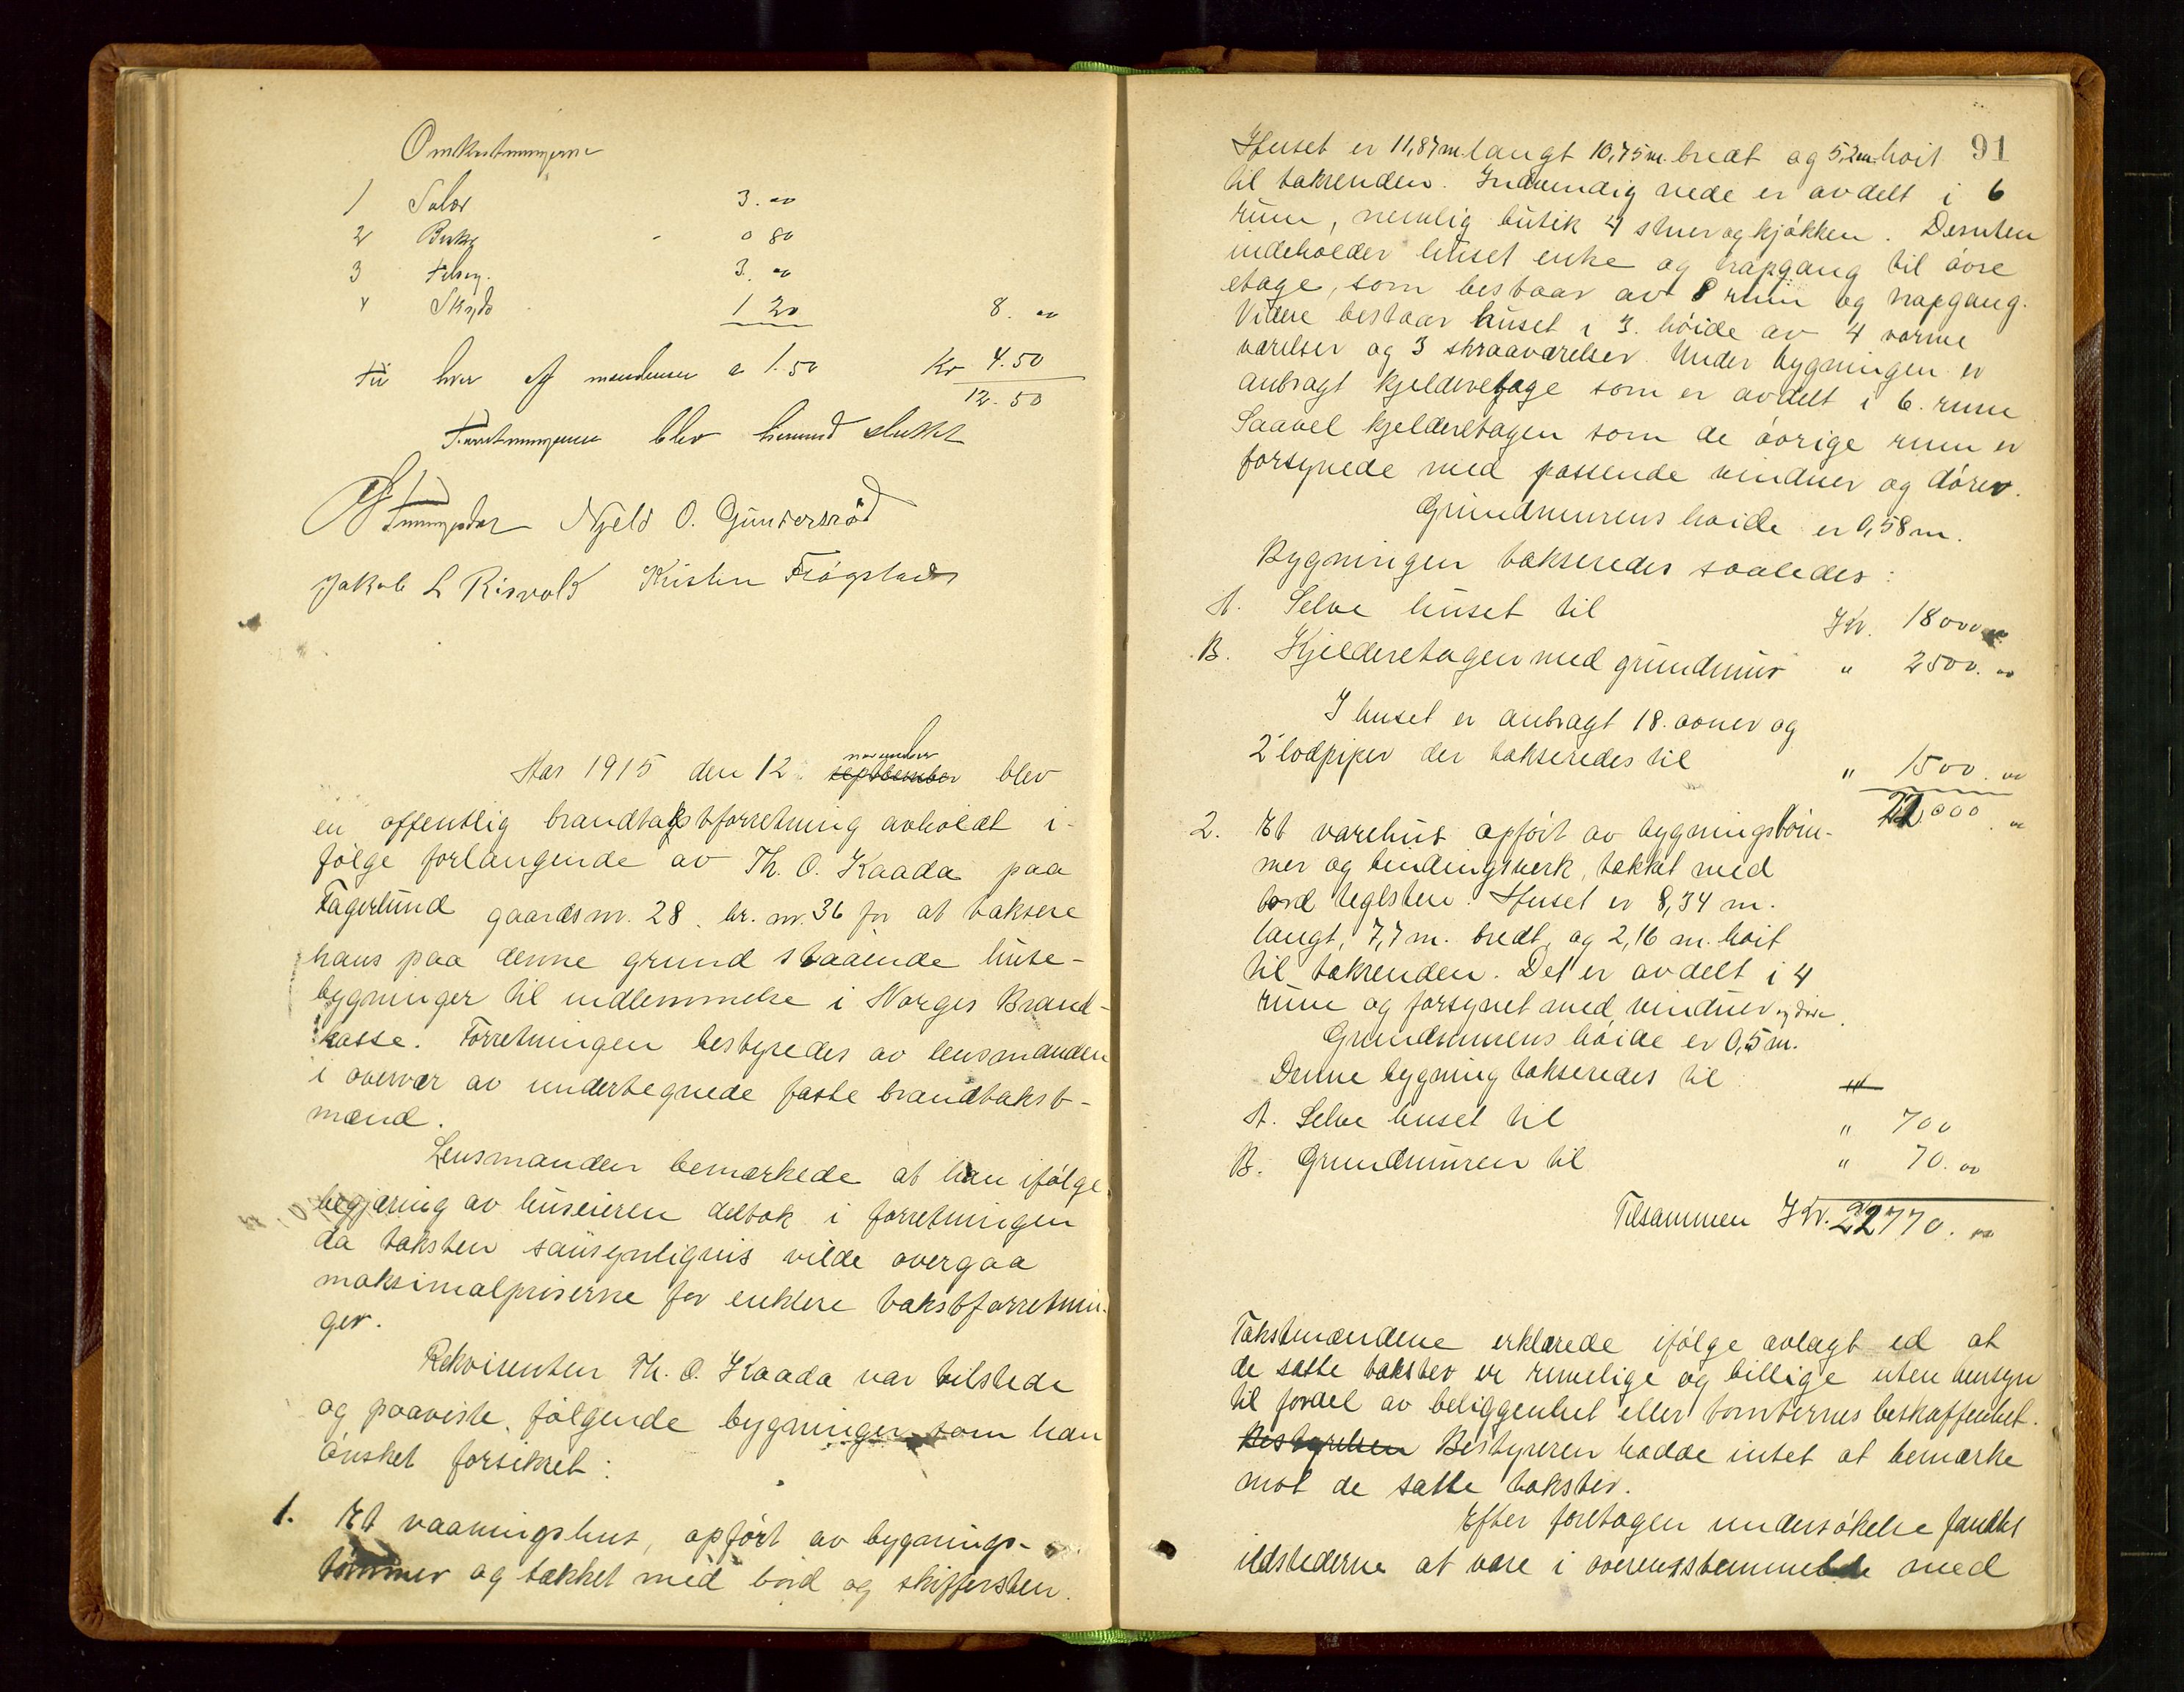 Omkostningerne
1 Salær 3.00
2 3Bøker 0 80
3 3.00
4 Skyds 1 20 8.00
Til hver af mændene a 1.50 Kr 4.50
12.50
Forretningerne blev hermed sluttet
Njeld O. Gundersrød
Jakob L Risvold Kristen Frøgstad
Aar 1915 den 12. september november blev
en offentlig brandtakstforretning avholdt i-
følge forlangende av Th. O. Kaada paa
Fagerlund gaardsnr. 28. br. nr. 36 for at taksere
hans paa denne grund staaende huse-
bygninger til indlemmelse i Norges Brand-
kasse. Forretningen bestyredes av lensmanden
i overvær av undertegnede faste brandtakst-
mænd.
Lensmanden bemærkede at han ifølge
begjæring av huseieren deltok i forretningen
da taksten sansynligvis vilde overgaa
maksimalpriserne for enklere takstforretnin-
ger.
Rekvirenten Th. O. Kaada var tilstede
og paaviste følgende bygninger som han
ønsket forsikret:
1. Et vaaningshus, opført av bygnings-
tømmer og tækket med bord og skiffersten.
91
Huset er 11,87 m. langt 10,75 m. bredt og 5,2 m høit
til takrenden. Indvendig nede er avdelt i 6
rum, nemlig butik 4 stuer og kjøkken. Desuten
indeholder huset enke og trapgang til øvre
etage, som bestaar av 8 rum og trapgang.
Videre bestaar huset i 3. høide av 4 varme
værelser og 3 skraaværelser. Under bygningen er
anbragt kjelderetage som er avdelt i 6. rum
Saavel kjelderetagen som de øvrige rum er
forsynede med passende vinduer og dører.
Grundmurens høide er 0,58 m.
Bygningen takseredes saaledes:
A. Selve huset til Kr. 18000.00
B. Kjelderetagen med grundmur " 2500.00
I huset er anbragt 18. ovner og
2 lodpiper der takseredes til " 1500.00
22000.00
2. Et varehus opført av bygningstøm-
mer og bindingsverk, tækket med
bord teglsten. Huset er 8,34 m.
langt, 7,7 m. bredt, og 2,16 m. høit
til takrenden. Det er avdelt i 4
rum og forsynet med vinduer og døre.
Grundmurens høide er 0,5 m.
Denne bygning takseredes til "
A. Selve huset til " 700
B. Grundmuren til " 70.00
Tilsammen Kr. 22770.00
Takstmændene erklærede ifølge avlagt ed at
de satte takster er rimelige og billige uten hensyn
til fordel av beliggenhet eller tomternes beskaffenhet.
Bestyrelsen Bestyreren hadde intet at bemærke
mot de satte takster.
Efter foretagen undersøkelse fandtes
ildstederne at være i overensstemmelse med